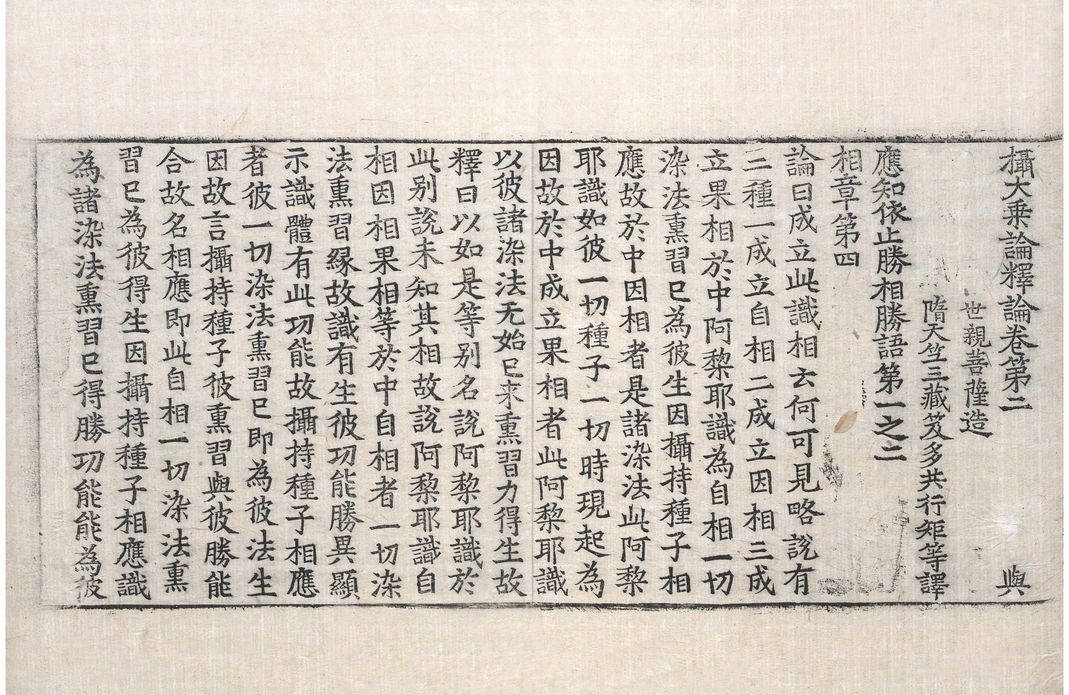 攝大乗論釋論卷第二 與
世親菩薩造
隋天竺三藏笈多共行矩等譯
應知依止勝相勝語第一之二
相章第四
論曰成立此識相云何可見略說有
三種一成立自相二成立因相三成
立果相於中阿黎耶識為自相一切
染法熏習已為彼生因攝持種子相
應故於中因相者是諸染法此阿黎
耶識如彼一切種子一切時現起為
因故於中成立果相者此阿黎耶識
以彼諸染法无始已来熏習力得生故
釋曰以如是等别名說阿黎耶識於
此别說未知其相故說阿黎耶識自
相因相果相等於中自相者一切染
法熏習緣故識有生彼功能勝異顯
示識體有此功能故攝持種子相應
者彼一切染法熏習已即為彼法生
因故言攝持種子彼熏習與彼勝能
合故名相應即此自相一切染法熏
習已為彼得生因攝持種子相應識
為諸染法熏習已得勝功能能為彼